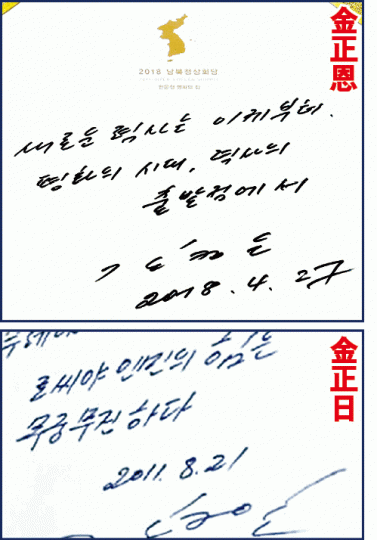 金正恩
2018 남북정상회담
판문점 평화의 집
새로운 력사는 이제부터.
평화의 시대, 력사의
출발점에서
김정은
2018. 4. 27
金正日
로씨야 인민의 힘은
무궁무진하다
2011. 8. 21